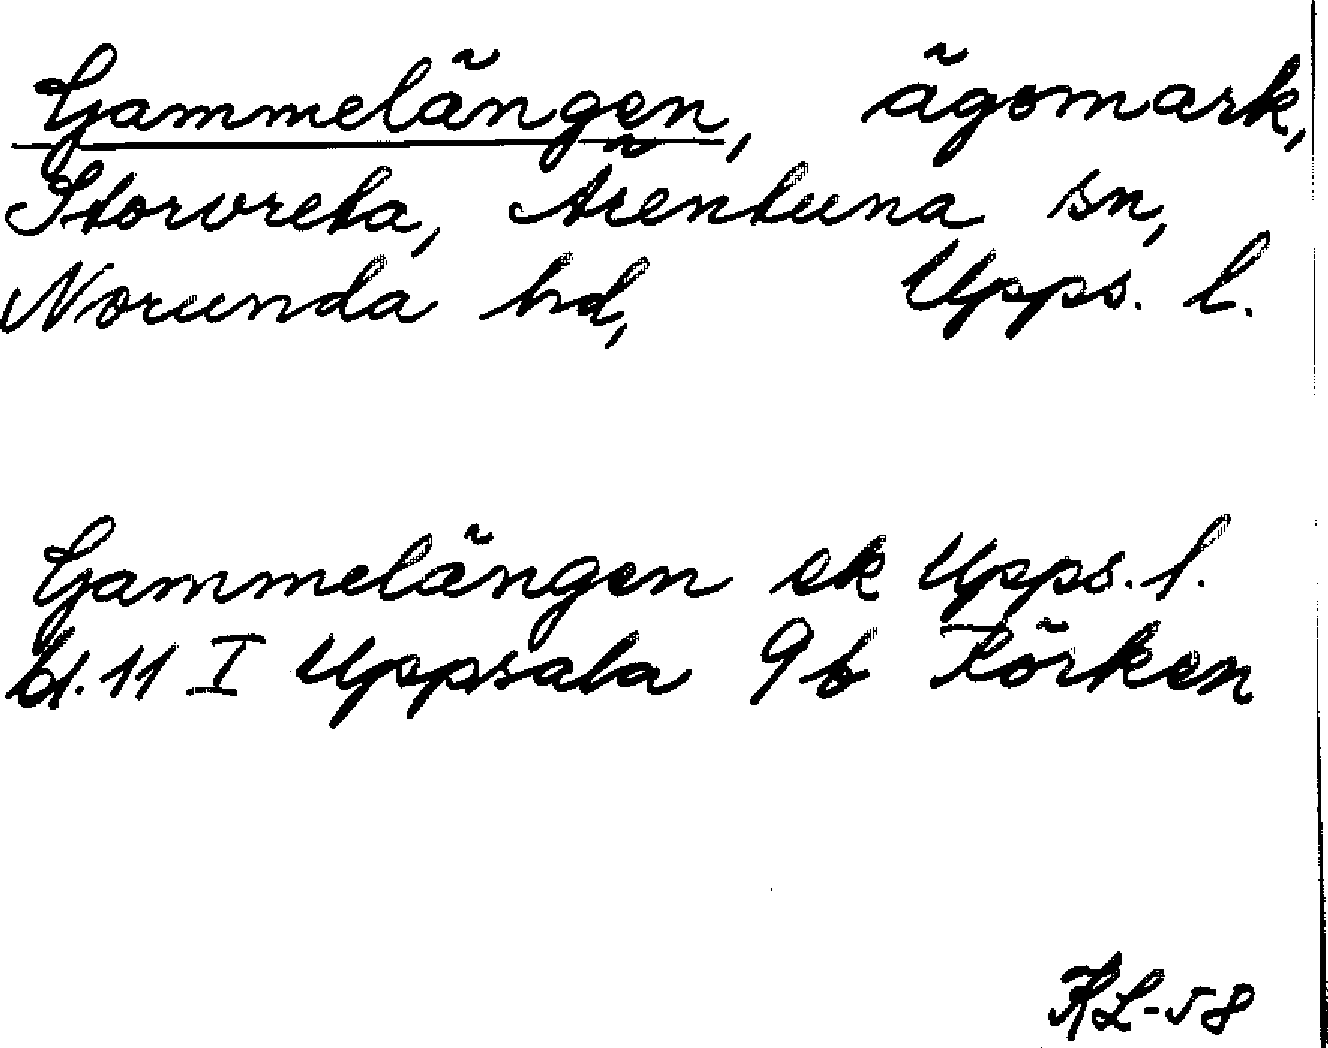 Gammelängen, ägomark,
Storvreta, Ärentuna sn,
Norunda hd, Upps. l.
Gammelängen ek Upps. l.
bl. 11 I Uppsala 9b Rörken
KL-58